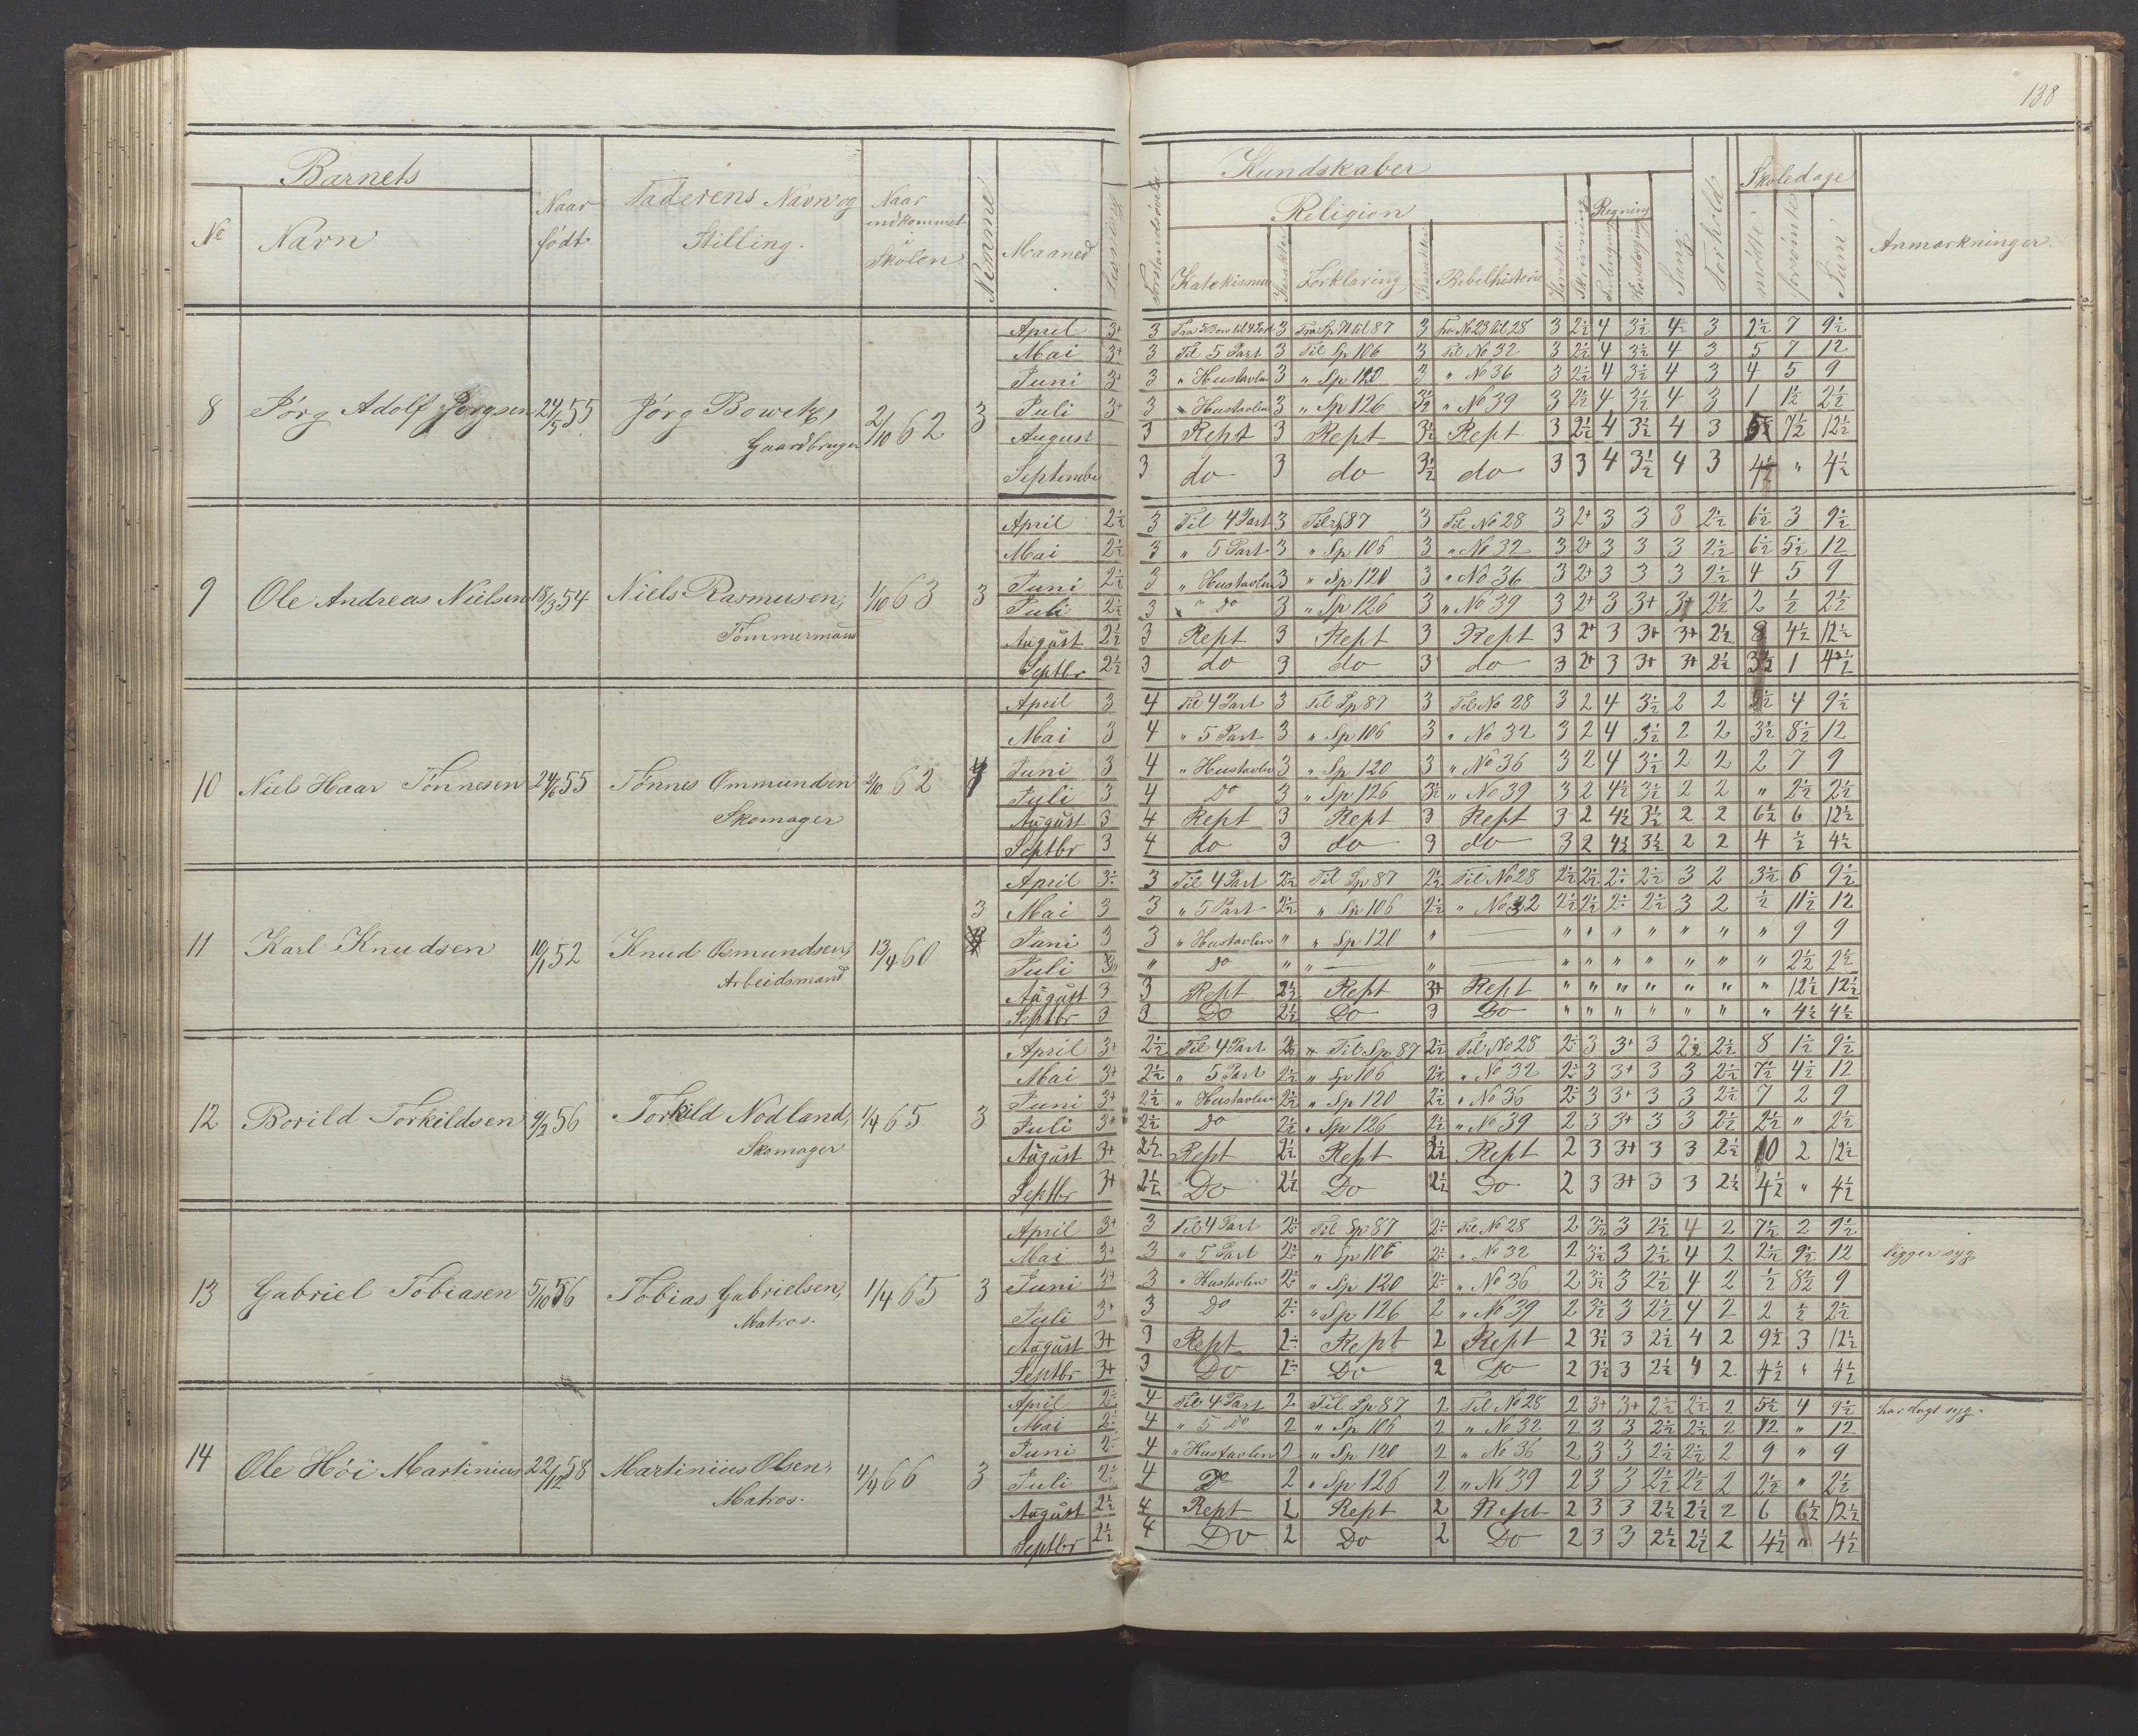 138
Barnets
No
Navn
Naar født
Faderens Navn og Stilling.
Naar indkommet i Skolen
Nemme
Maaned
Læsning
Forstandsøvelse
Kundskaber
Religion
Katekismus
Karakter
Forklaring
Karakter
Bibelhistorie
Karakter
Skrivning
Regning
Tavleregning
Hovedregning
Sang
Forhold
Skoledage
mødte
forsømte
Sum
Anmærkninger.
8 Jørg Adolf Jørgsen 24/5 55 Jørg Bowitz, Gaardbruger 2/10 62 3
April 3+ 3 Fra 3 Bøn til 4 Part 3 Fra Sp 70 til 87 3 fra No 23 til 28 3 2½ 4 3½ 4½ 3 2½ 7 9½
Mai 3+ 3 Til 5 Part 3 Til Sp 106 3 Til No 32 3 2½ 4 3½ 4 3 5 7 12
Juni 3+ 3 " Hustavlen 3 " Sp 120 3 " No 36 3 2½ 4 3½ 4 3 4 5 9
Juli 3+ 3 " Hustavlen 3 " Sp 126 3½ " No 39 3 2½ 4 3½ 4 3 1 1½ 2½
August 3 Rept 3 Rept 3½ Rept 3 2½ 4 3½ 4 3 5 7½ 12½
September 3 do 3 do 3½ do 3 3 4 3½ 4 3 4½ " 4½
9 Ole Andreas Nielsen 18/3 54 Niels Rasmusen, Tømmermand 1/10 63 3
April 2½ 3 Til 4 Part 3 Til Sp 87 3 Til No 28 3 2+ 3 3 3 2½ 6½ 3 9½
Mai 2½ 3 " 5 Part 3 " Sp 106 3 " No 32 3 2+ 3 3 3 2½ 6½ 5½ 12
Juni 2½ 3 " Hustavlen 3 " Sp 120 3 " No 36 3 2+ 3 3 3 2½ 4 5 9
Juli 2½ 3 " Do 3 " Sp 126 3 " No 39 3 2+ 3 3+ 3+ 2½ 2 ½ 2½
August 2½ 3 Rept 3 Rept 3 Rept 3 2+ 3 3+ 3+ 2½ 8 4½ 12½
Septbr 2½ 3 do 3 do 3 do 3 2+ 3 3+ 3+ 2½ 3½ 1 4½
10 Niels Haar Tønnesen 24/6 55 Tønnes Ommundsen Skomager 2/10 62 4
April 3 4 Til 4 Part 3 Til Sp 87 3 Til No 28 3 2 4 3½ 2 2 5½ 4 9½
Mai 3 4 " 5 Part 3 " Sp 106 3 " No 32 3 2 4 3½ 2 2 3½ 8½ 12
Juni 3 4 " Hustavlen 3 " Sp 120 3 " No 36 3 2 4 3½ 2 2 2 7 9
Juli 3 4 Do 3 " Sp 126 3½ " No 39 3 2 4½ 3½ 2 2 " 2½ 2½
August 3 4 Rept 3 Rept 3 Rept 3 2 4½ 3½ 2 2 6½ 6 12½
Septbr 3 4 do 3 do 3 do 3 2 4½ 3½ 2 2 4 ½ 4½
11 Karl Knudsen 10/1 52 Knud Osmundsen, Arbeidsmand 13/4 60 3
April 3÷ 3 Til 4 Part 2½ Til Sp 87 2½ Til No 28 2½ 2½ 2÷ 2½ 3 2 3½ 6 9½
Mai 3 3 " 5 Part 2½ " Sp 106 2½ " No 32 2½ 2½ 2÷ 2½ 3 2 ½ 11½ 12
Juni 3 3 " Hustavlen " " Sp 120 " — " " " " " " " 9 9
Juli " " Do " " — " — " " " " " " " 2½ 2½
August 3 3 Rept 2½ Rept 3+ Rept " " " " " " " 12½ 12½
Septbr 3 3 Do 2½ Do 3 Do " " " " " " " 4½ 4½
12 Borild Torkildsen 9/2 56 Torkild Nodland, Skomager 1/4 65 3
April 3+ 2½ Til 4 Part 2½ " Til Sp 87 2½ Til No 28 2÷ 3 3+ 3 2½ 2½ 8 1½ 9½
Mai 3+ 2½ " 5 Part 2½ " Sp 106 2½ " No 32 2÷ 3 3+ 3 3 2½ 7½ 4½ 12
Juni 3+ 2½ " Hustavlen 2½ " Sp 120 2½ " No 36 2÷ 3 3+ 3 3 2½ 7 2 9
Juli 3+ 2½ Do 2½ " Sp 126 2½ " No 39 2 3 3+ 3 3 2½ 2½ " 2½
August 3+ 2½ Rept 2½ Rept 2½ Rept 2 3 3+ 3 3 2½ 10 2 12½
Septbr 3+ 2½ Do 2½ Do 2½ Do 2 3 3+ 3 3 2½ 4½ " 4½
13 Gabriel Tobiasen 5/10 56 Tobias Gabrielsen, Matros. 1/4 65 3
April 3+ 3 Til 4 Part 2÷ Til Sp 87 2÷ Til No 28 2 3½ 3 2½ 4 2 7½ 2 9½
Mai 3+ 3 " 5 Part 2÷ " Sp 106 2÷ " No 32 2 3½ 3 2½ 4 2 2½ 9½ 12 ligger syg
Juni 3+ 3 " Hustavlen 2÷ " Sp 120 2÷ " No 36 2 3½ 3 2½ 4 2 ½ 8½ 9
Juli 3+ 3 Do 2÷ " Sp 126 2 " No 39 2 3½ 3 2½ 4 2 2 ½ 2½
August 3+ 3 Rept 2÷ Rept 2 Rept 2 3½ 3 2½ 4 2 9½ 3 12½
Septbr 3+ 3 Do 2÷ Do 2 Do 2 3½ 3 2½ 4 2 4½ " 4½
14 Ole Höi Martinius 22/12 58 Martinius Olsen, Matros. 4/4 66 3
April 2÷ 4 Til 4 Part 2 Til Sp 87 2 Til No 28 2 3+ 3+ 2½ 2½ 2 5½ 4 9½ har lagt syg.
Mai 2÷ 4 " 5 Do 2 " Sp 106 2 " No 32 2 3 3 2½ 2½ 2 12 " 12
Juni 2÷ 4 " Hustavlen 2 " Sp 120 2 " No 36 2 3 3 2½ 2½ 2 9 " 9
Juli 2½ 4 Do 2 " Sp 126 2 " No 39 2 3 3 2½ 2½ 2 2½ " 2½
August 2½ 4 Rept 2 Rept 2 Rept 2 3 3 2½ 2½ 2 6 6½ 12½
Septbr 2½ 4 Do 2 Do 2 Do 2 3 3 2½ 2½ 2 4½ " 4½